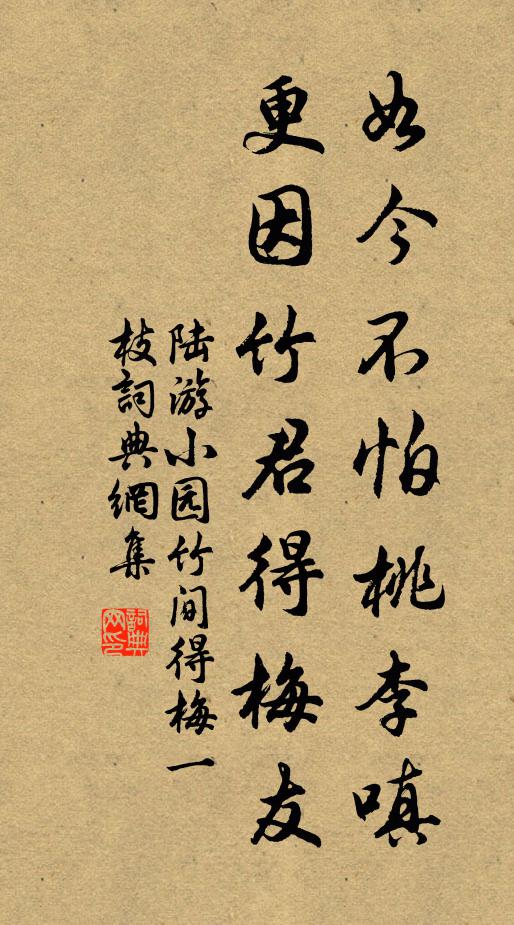 如今不怕桃李嗔
更因竹君得梅友
陆游小园竹间得梅一
枝詞典網集
詞典网印